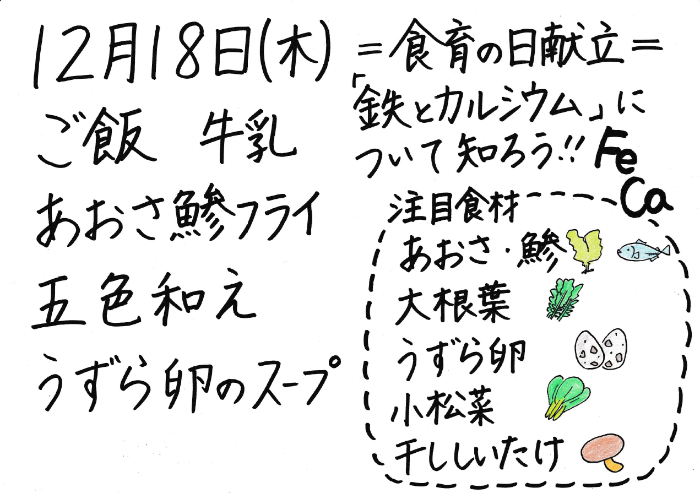 12月18日(木)
ご飯 牛乳
あおさ鯵フライ
五色和え
うずら卵のスープ
=食育の日献立=
「鉄とカルシウム」に
ついて知ろう!! Fe
Ca
注目食材
あおさ・鯵
大根葉
うずら卵
小松菜
干ししいたけ